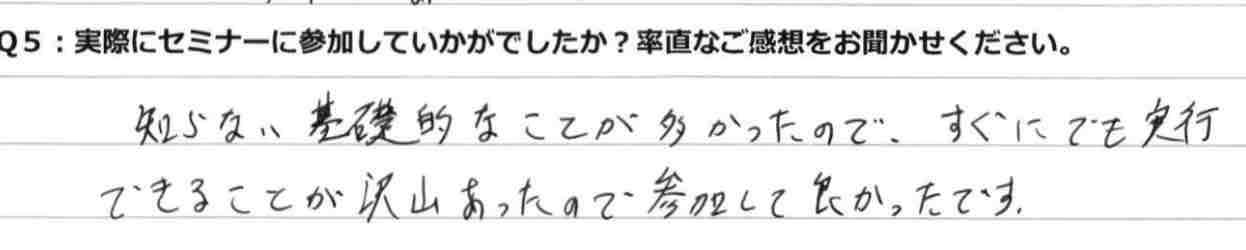 Q5：実際にセミナーに参加していかがでしたか？率直なご感想をお聞かせください。
知らない基礎的なことが多かったので、すぐにでも実行
できることが沢山あったので参加して良かったです。